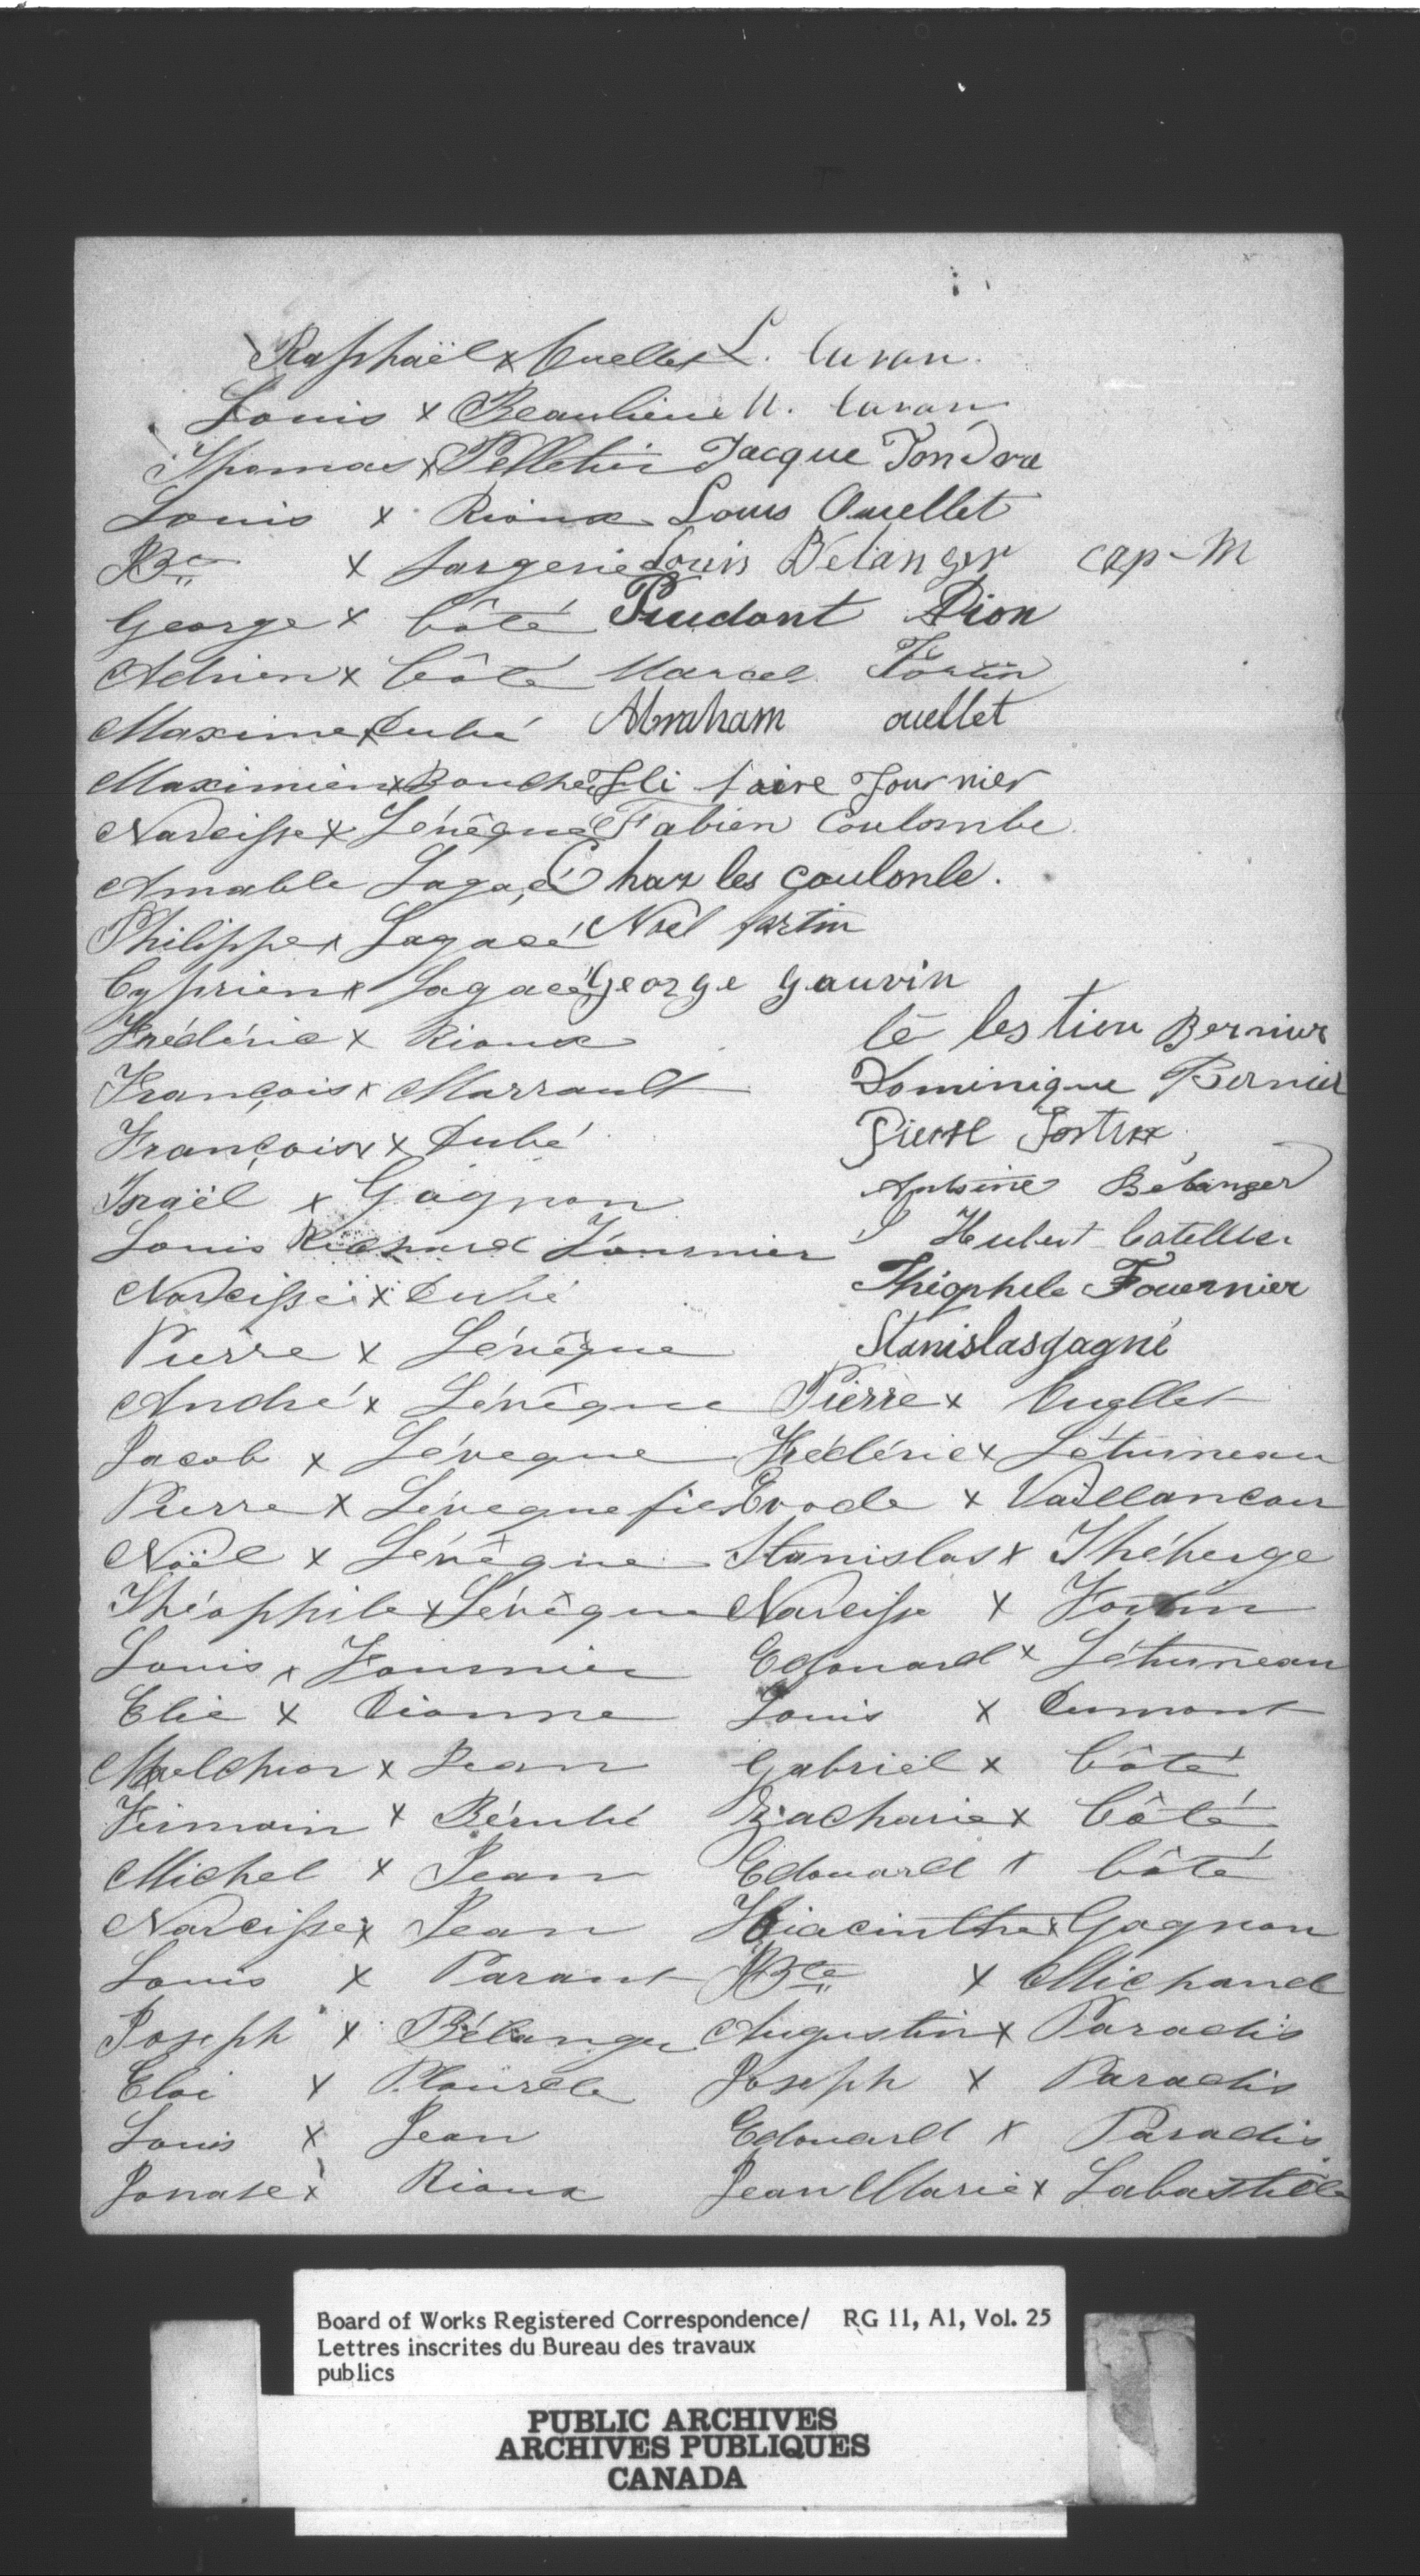 Raphaël x Ouellet L. Caron.
Louis x Beaulieu N. Caron
Thomas x Pelletier Jacque Jondro
Louis x Rioux Louis Ouellet
JBte x Largerie Louis Bélanger cap-M
George x Côté Prudant Dion
Adrien x Côté Marcel Fortin
Maxime x Dubé Abraham ouellet
Maximien x Boucher Fournier
Narcisse x Lévêque Fabien Coulombe
Amable Lagacé Char les çoulonle.
Philippe x Lagacé Noel fortin
Cyprien x Lagacé George gauvin
Frédéric x Rioux Cé les tien Bernier
François x Marrault Dominique Bernier
François x Dubé Pierre
Israël x Gagnon Antoine Bélanger
Louis Richard Fournier Hubert Catellier
Narcisse x Dubé Théophele Fouernier
Pierre x Lévêque Stanislas gagné
André x Lévêque Pierre x Ouellet
Jacob x Léveque Frédéric x Léturneau
Pierre x Léveque fils Evode x Vaillancour
Noël x Lévêque Stanislas x Théberge
Théophile x Lévêque Narcisse x Fortin
Louis x Fournier Edouard x Léturneau
Elie x Dionne Louis x Dumont
Melchior x Jean Gabriel x Côté
Firmain x Bérubé Zacharie x Côté
Michel x Jean Edouard x Côté
Narcisse x Jean Hiacinthe x Gagnon
Louis x Parant JBte x Michaud
Joseph x Bélanger Augustin x Paradis
Eloi x Plourde Joseph x Paradis
Louis x Jean Edouard x Paradis
Jonase x Rioux Jean Marie x Labastille
Board of Works Registered Correspondence/ RG 11, A1, Vol. 25
Lettres inscrites du Bureau des travaux
publics
PUBLIC ARCHIVES
ARCHIVES PUBLIQUES
CANADA